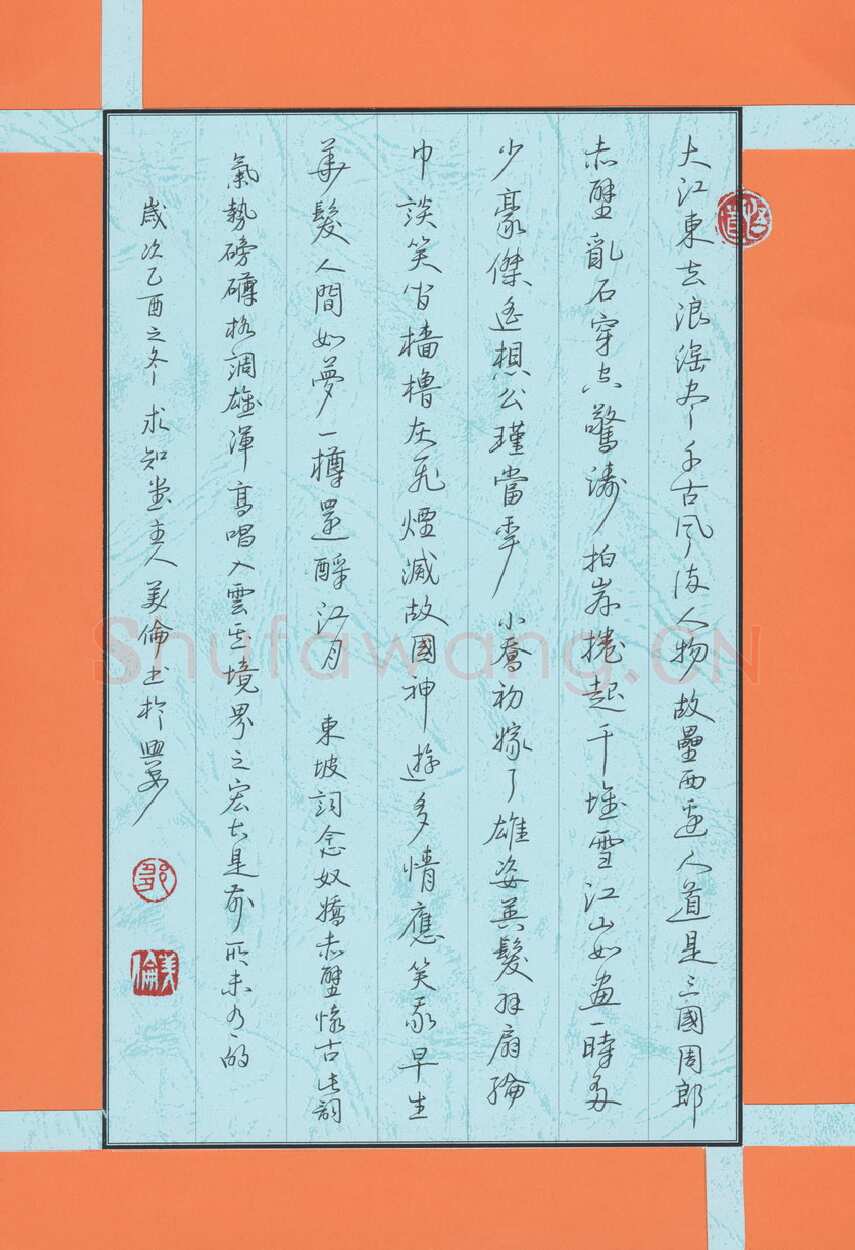 大江東去浪淘盡千古風流人物故壘西邊人道是三國周郎
赤壁亂石穿空驚濤拍岸捲起千堆雪江山如畫一時多
少豪傑遙想公瑾當年小喬初嫁了雄姿英髮羽扇綸
巾談笑間檣櫓灰飛煙滅故國神遊多情應笑我早生
華髮人間如夢一樽還酹江月 東坡詞念奴嬌赤壁懷古此詞
氣勢磅礴格調雄渾高唱入雲其境界之宏大是前所未有的
歲次乙酉之冬求知堂主人美倫書於
鄒
美倫
Shufawang.CN